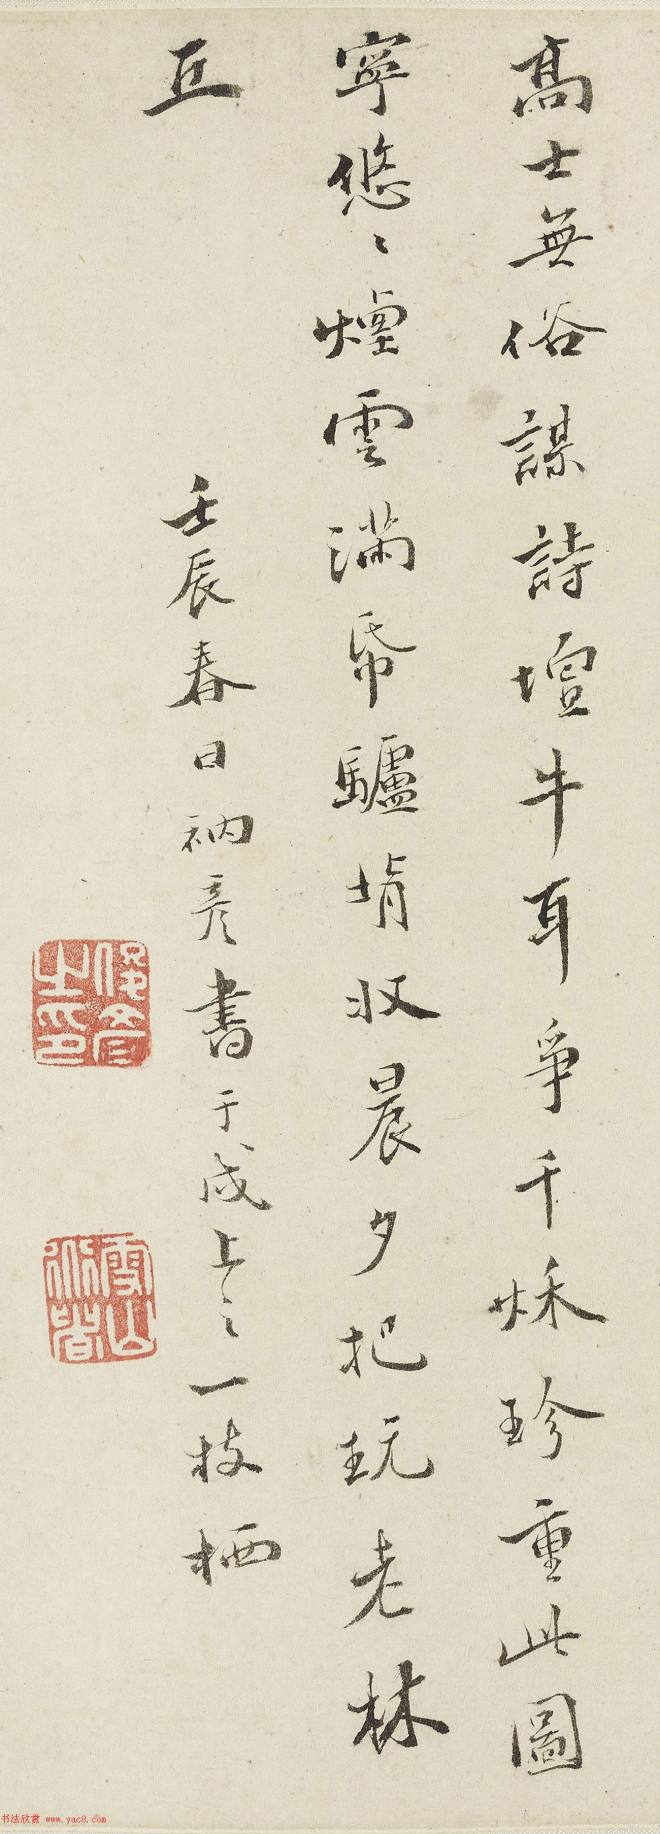 高士無俗謀詩壇牛耳爭千秌珍重此圖
寧悠〻煙雲滿帋驢堉收晨夕把玩老林
丘
壬辰春日衲彥書于成上之一枝栖
俊彥之印
書法欣赏 www.yac8.com